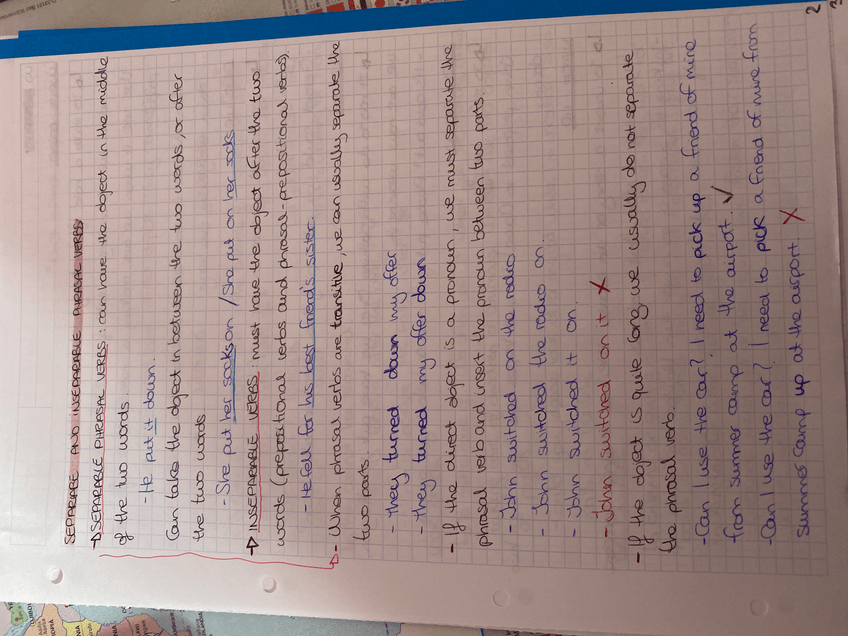 SEPARABE AND INSEPARABLE PHRASAL VERBS
→ SEPARABLE PHRASAL VERBS: can have the object in the middle
of the two words
- He put it down.
Can take the object in between the two words, or after
the two words
- She put her socks on / She put on her socks
→ INSEPARABLE VERBS: must have the object after the two
words (prepositional verbs and phrasal-prepositional verbs).
- He fell for his best friend's sister.
- When phrasal verbs are transitive, we can usually separate the
two parts.
- they turned down my offer
- they turned my offer down
- If the direct object is a pronoun, we must separate the
phrasal verb and insert the pronoun between two parts.
- John switched on the radio
- John switched the radio on.
- John switched it on.
- John switched on it X
- If the object is quite long, we usually do not separate
the phrasal verb.
- Can I use the car? I need to pick up a friend of mine
from summer camp at the airport. ✓
- Can I use the car? I need to pick a friend of mine from
summer camp up at the airport. X
2